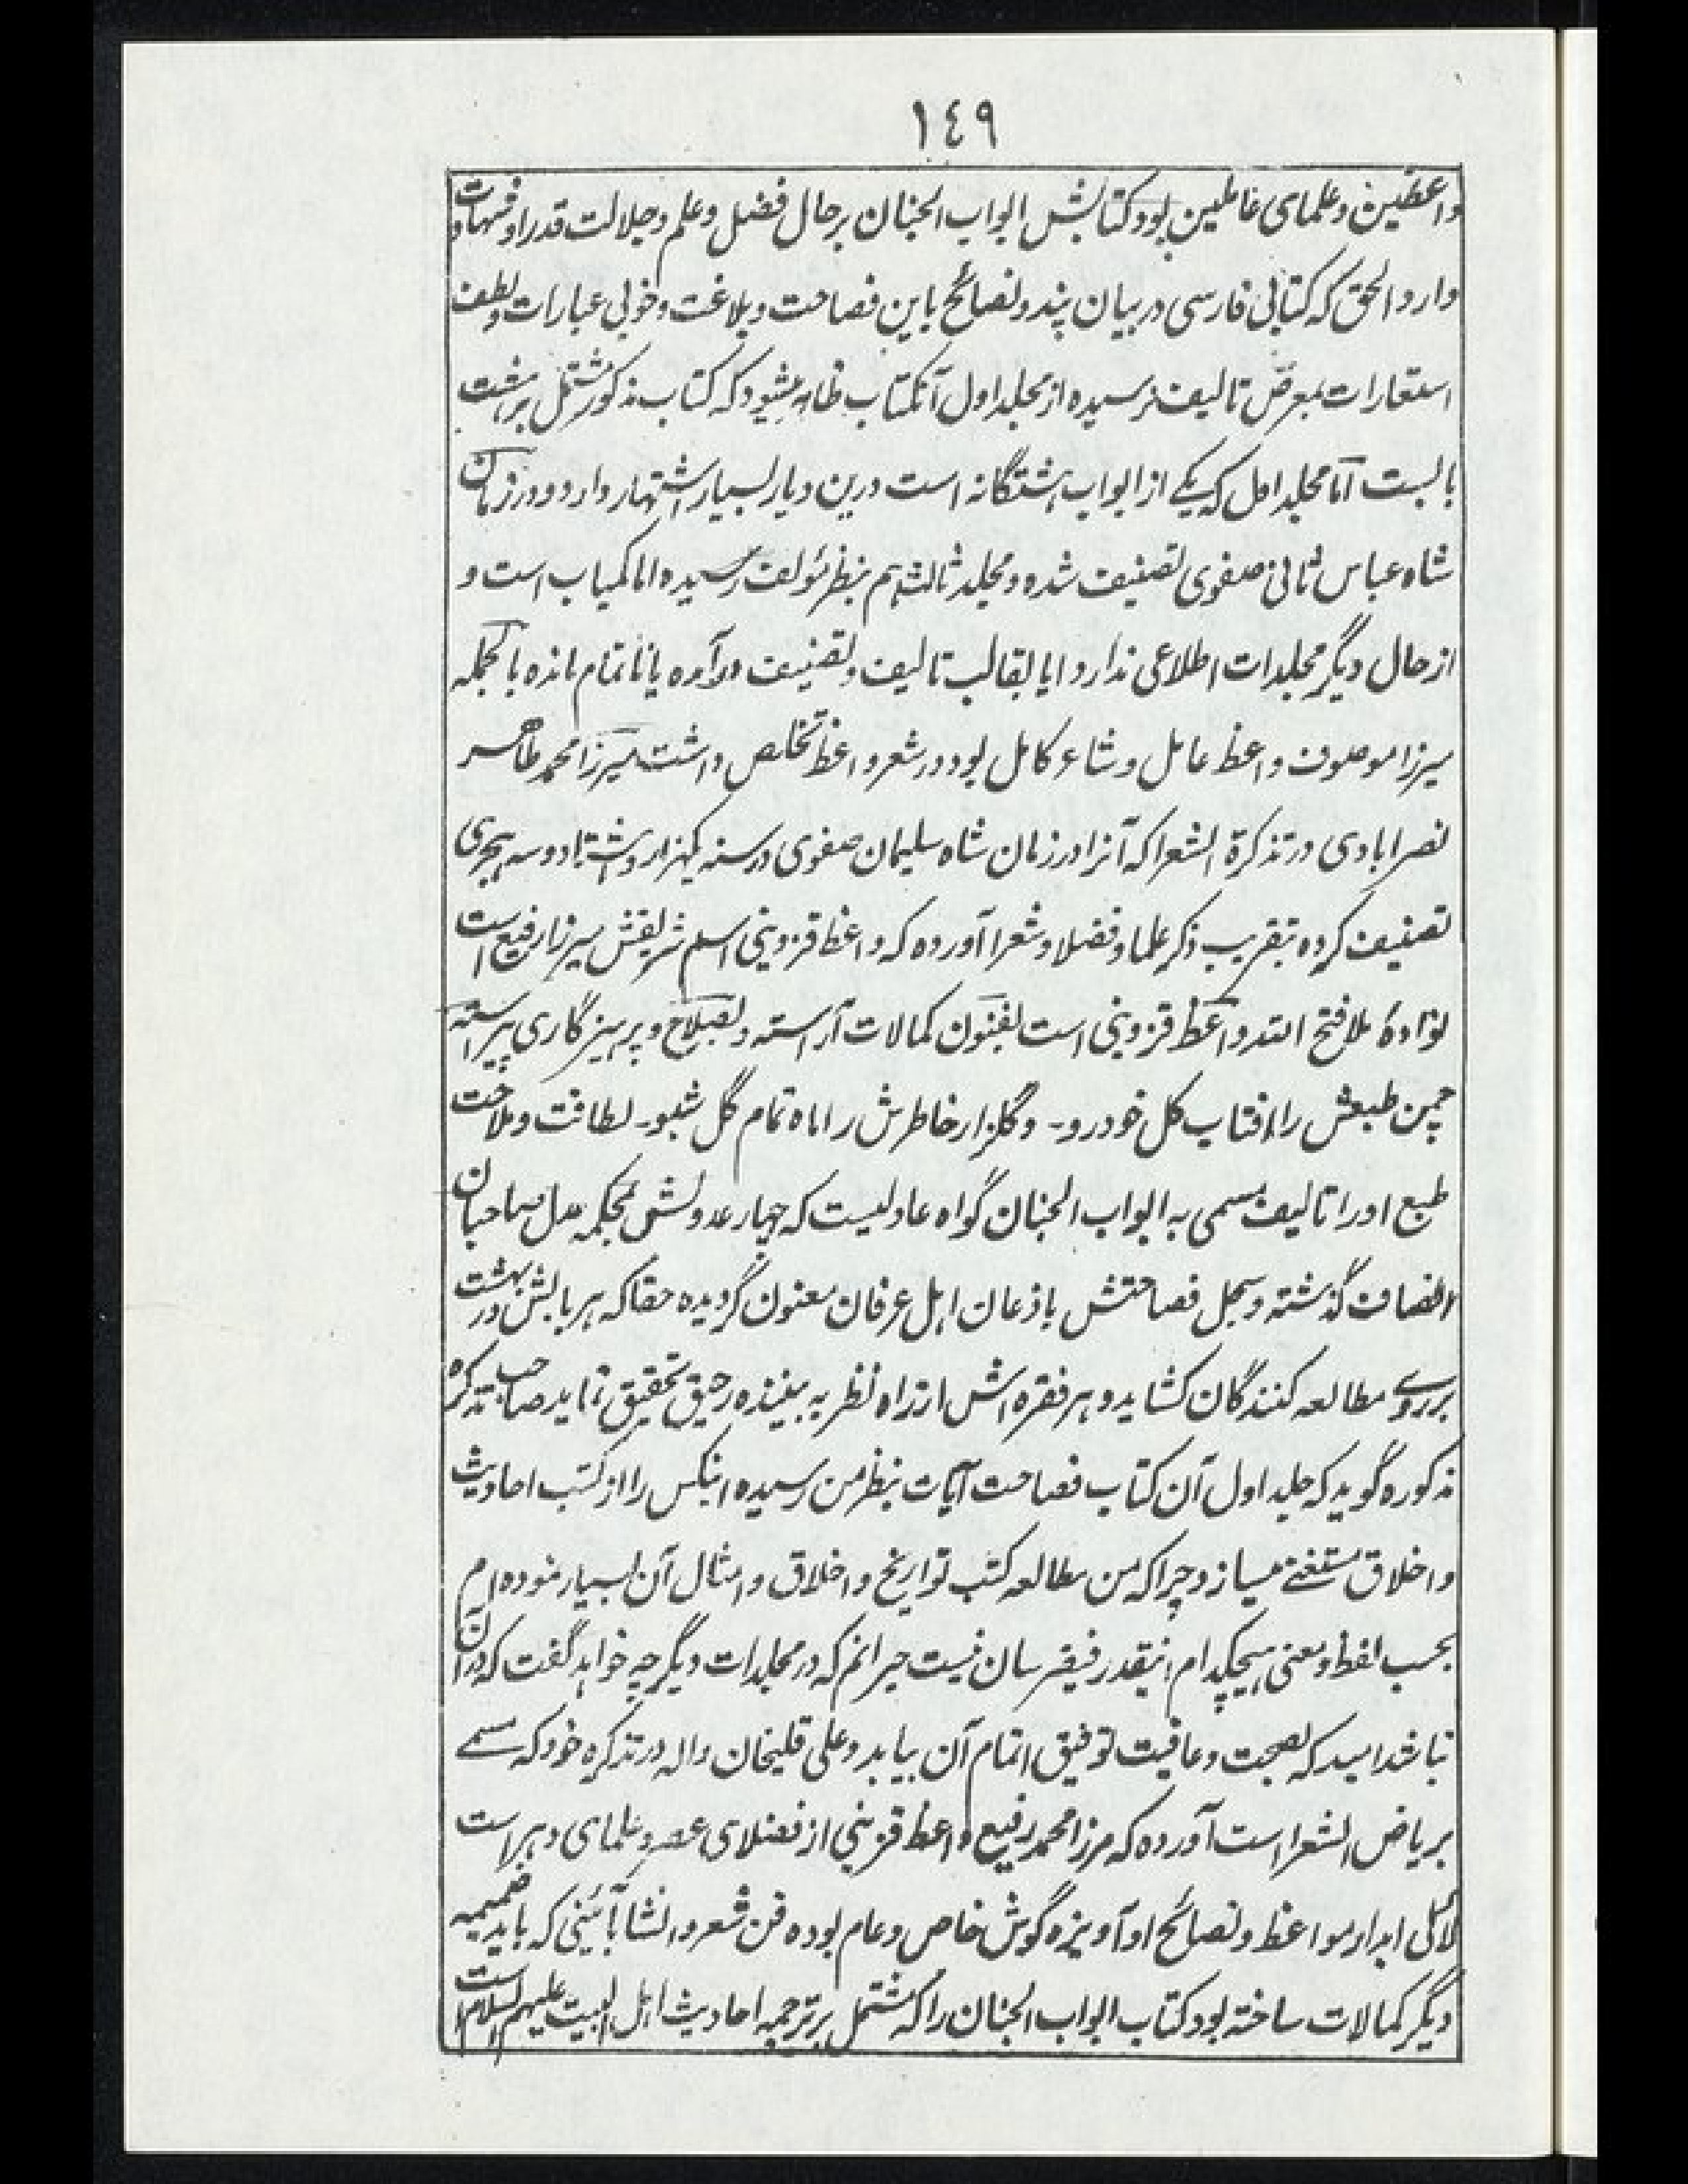 ١٤٩
واعظین و علمای غاطین بود کتابش ابواب الجنان بر حال فضل و علم و جلالت قدر او شهادت
دارد الحق که کتابی فارسی در بیان پند و نصائح باین فصاحت و بلاغت و خوبی عبارات و لطف
استعارات بمعرض تالیف نرسیده از مجلد اول آنکتاب ظاهر میشود که کتاب مذکور مشتمل بر هشت
بابست اما مجلد اول که یکے از ابواب هشتگانه است درین دیار بسیار اشتهار دارد و در زمان
شاه عباس ثانی صفوی تصنیف شده و مجلد ثالث هم بنظر مؤلف رسیده اما کمیاب است و
از حال دیگر مجلدات اطلاعی ندارد ایا بقالب تالیف و تصنیف درآمده یا ناتمام مانده بالجمله
میرزا موصوف واعظ عامل و شاعر کامل بود در شعر واعظ تخلص داشت میرزا محمد طاهر
نصرابادی در تذکرة الشعرا که آنرا در زمان شاه سلیمان صفوی در سنه یکهزار و هشتاد و سه هجری
تصنیف کرده بتقریب ذکر علما و فضلا و شعرا آورده که واعظ قزوینی اسم شریفش میرزا رفیع است
نوادۀ ملا فتح الله واعظ قزوینی است بفنون کمالات آراسته و بصلاح و پرهیزگاری پیراسته
چمن طبعش را افتاب کل خودرو - و گلزار خاطرش را ماه تمام گل شبو - لطافت و ملاحت
طبع او را تالیف مسمی به ابواب الجنان گواه عادلیست که چهار عدولش بمحکمه عدل صاحبان
انصاف گذشته و سجل فصاحتش باذعان اهل عرفان معنون گردیده حقا که هر بابش در بهشت
بروے مطالعه کنندگان کشاید و هر فقره اش از راه نظر به بیننده رحیق تحقیق نماید صاحب تذکره
مذکوره گوید که جلد اول آن کتاب فصاحت آیات بنظر من رسیده اینکس را از کتب احادیث
و اخلاق مستغنے میسازد چرا که من مطالعه کتب تواریخ و اخلاق و امثال آن بسیار نموده ام
بحسب لفظ و معنی هیچکدام اینقدر فیض رسان نیست حیرانم که در مجلدات دیگر چه خواهد گفت که در آن
نباشد امید که بصحت و عافیت توفیق اتمام آن بیابد و علی قلیخان واله در تذکره خود که مسمے
بریاض الشعرا است آورده که مرزا محمد رفیع واعظ قزوینی از فضلای عصر و علمای دهر است
لالی ابدار مواعظ و نصائح او آویزه گوش خاص و عام بوده فن شعر و انشا بآئینی که باید ضمیمه
دیگر کمالات ساخته بود کتاب ابواب الجنان را که مشتمل بر ترجمه احادیث اهل البیت علیهم السلام است